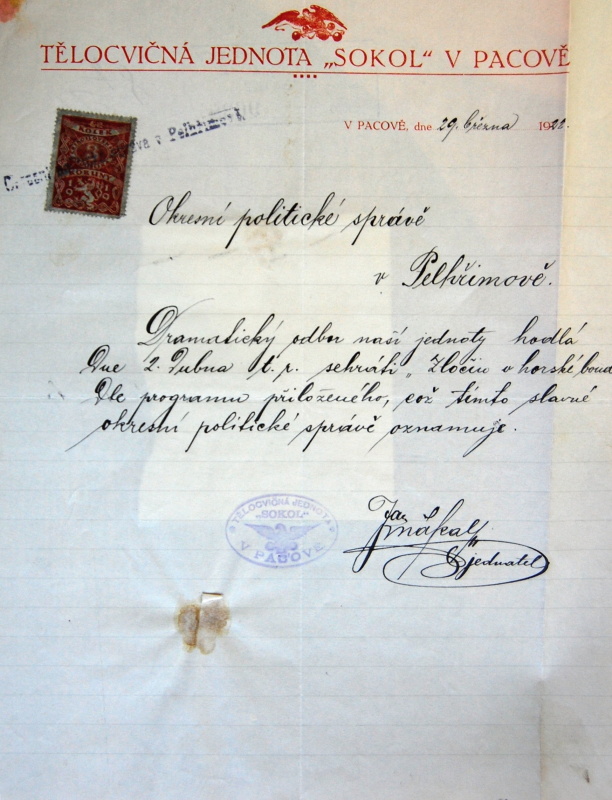 TĚLOCVIČNÁ JEDNOTA „SOKOL" V PACOVĚ
V PACOVĚ, dne 29. března 1922.
KOLEK
KORUNY
1919
v Pelhřimově.
Okresní politické správě
v Pelhřimově.
Dramatický odbor naší jednoty hodlá
Dne 2. Dubna t. r. sehráti „Zločin v horské boud
Dle programu přiloženého, což tímto slavné
okresní politické správě oznamuje.
TĚLOCVIČNÁ JEDNOTA
„SOKOL"
V PACOVĚ
Jan
jednatel